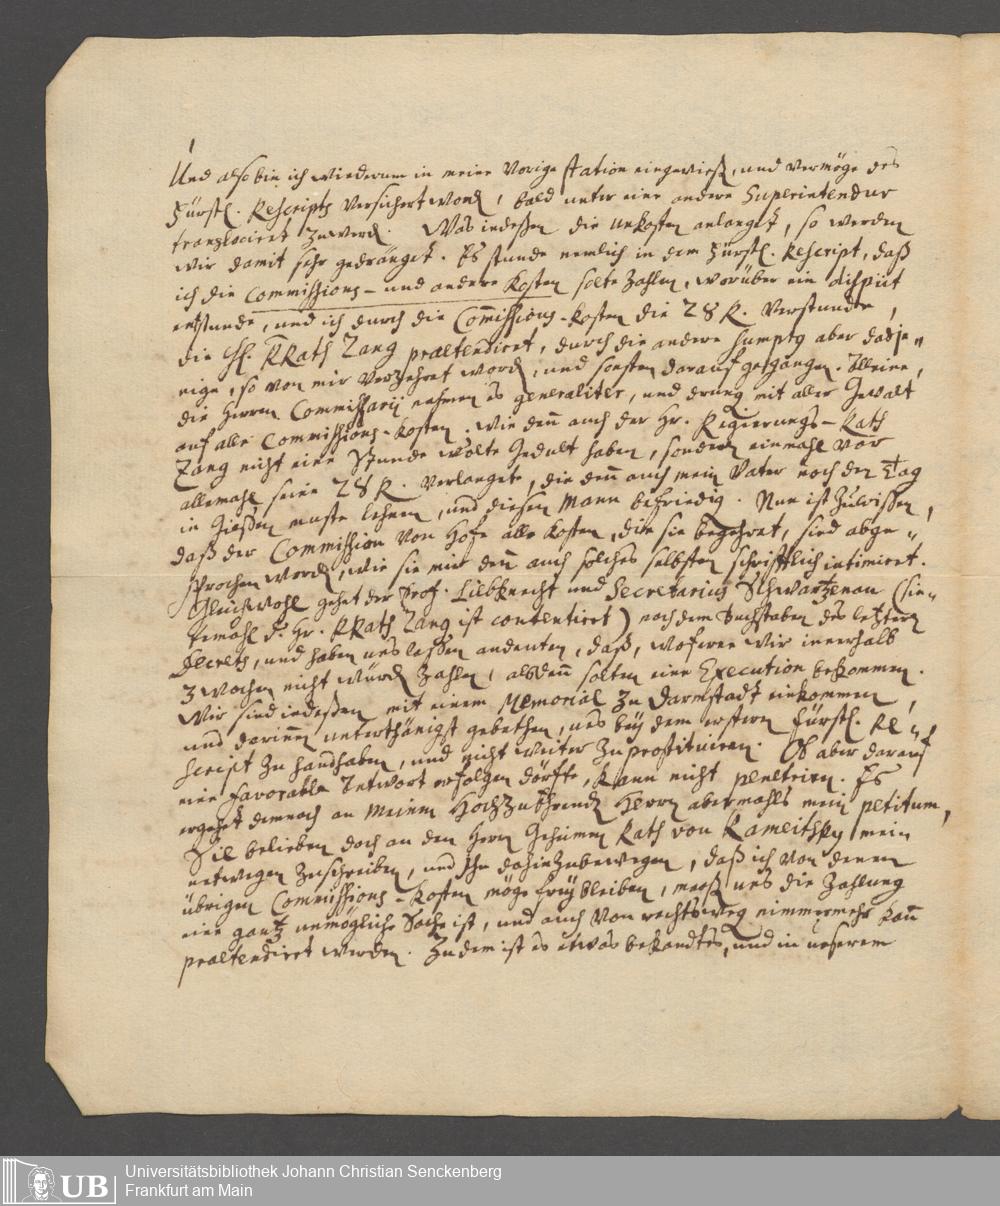 Und also bin ich wiederum in meine Vorige station eingewieß, und vermöge des
Fürstl. Rescripts Versichert word, bald unter eine andere Superintendur
translociret zu werd. Was indeßen die unkosten anlanget, so werden
wir damit sehr gedränget. Es stunde nemlich in dem Fürstl. Rescript, daß
ich die Commissions- und andere Kosten solte zahlen, worüber ein disput
entstunde, und ich durch die Commissions-Kosten die 28 R. Verstunde,
die H. RRath Zang praetendiret, durch die andere sumpts aber dasje„
nige, so von mir verzehret word, und sonsten darauf gegangen. Alleine,
die Herrn Commissarij nahmen es generaliter, und drung mit aller Gewalt
auf alle Commissions-Kosten. Wie den auch der Hr. Regierungs-Rath
Zang nicht eine Stunde wolte Gedult haben, sondern einmahl vor
allemahl seine 28 R. verlangete, die den auch mein Vater noch den Tag
in Gießen muste lehnen, und diesen Mann befriedig. Nun ist zu wißen,
daß der Commission von Hofe alle Kosten, die sie begehret, sind abge„
sprochen word, wie sie mir den auch solches selbsten schrifftlich intimiret.
Gleichwohl gehet der Prof. Liebknecht und Secretarius Schwartzenau (sin„
temahl d. Hr. RRath Zang ist contentiret) nach dem Buchstaben des letztern
Decrets, und haben uns laßen andeuten, daß, woferne wir innerhalb
3 wochen nicht würd zahlen, alsden solten eine Execution bekommen.
Wir sind indeßen mit einem Memorial zu Darmstadt einkommen,
und darinnen unterthänigst gebethen, uns bey dem erstern Fürstl. Re„
script zu handhaben, und nicht weiter zu prostituiren. Ob aber darauf
eine favorable Antwort erfolgen dörffte, kann nicht penetriren. Es
ergehet demnach an Meinen Hochzuehrend Herrn abermahls mein petitum,
Sie belieben doch an den Herrn Geheimen Rath von Kameitsky mein
netwegen zu schreiben, und Ihn dahin zu bewegen, daß ich von denen
übrigen Commissions-Kosten möge frey bleiben, maaß uns die Zahlung
eine gantz unmögliche Sache ist, und auch von rechtsweg nimmermehr kan
praetendiret werden. Zudem ist es etwas bekandtes, und in unserem
Universitätsbibliothek Johann Christian Senckenberg
Frankfurt am Main
UB